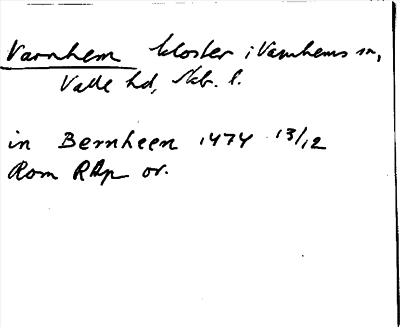 Varnhem kloster i Varnhems sn,
Valle hd, Skb. l.
in Bernheen 1474 13/12
Rom RAp or.